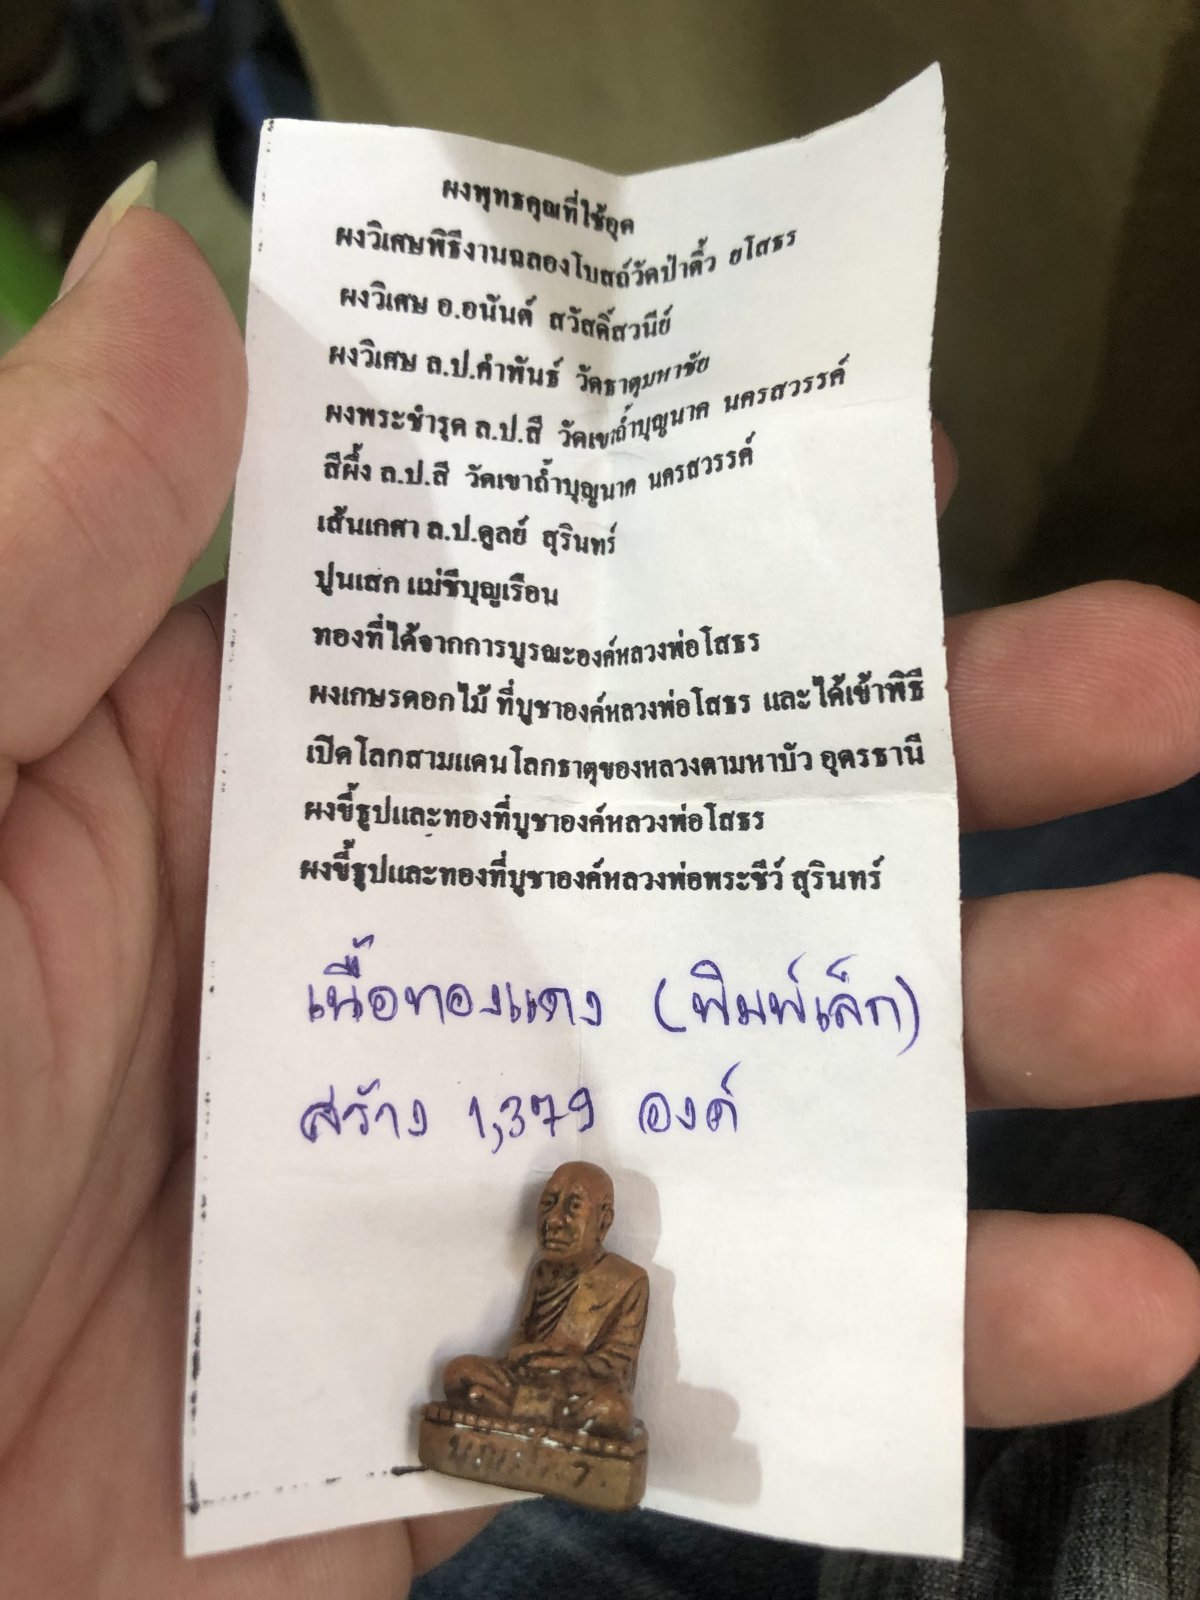 ผงพุทธคุณที่ใช้อุด
ผงวิเศษพิธีงานฉลองโบสถ์วัดป่าติ้ว ยโสธร
ผงวิเศษ อ.อนันต์ สวัสดิ์สวนีย์
ผงวิเศษ ล.ป.คำพันธ์ วัดธาตุมหาชัย
ผงพระชำรุด ล.ป.สี วัดเขาถ้ำบุญนาค นครสวรรค์
สีผึ้ง ล.ป.สี วัดเขาถ้ำบุญนาค นครสวรรค์
เส้นเกศา ล.ป.ดูลย์ สุรินทร์
ปูนเสก แม่ชีบุญเรือน
ทองที่ได้จากการบูรณะองค์หลวงพ่อโสธร
ผงเกษรดอกไม้ ที่บูชาองค์หลวงพ่อโสธร และได้เข้าพิธี
เปิดโลกสามแดนโลกธาตุของหลวงตามหาบัว อุดรธานี
ผงขี้ธูปและทองที่บูชาองค์หลวงพ่อโสธร
ผงขี้ธูปและทองที่บูชาองค์หลวงพ่อพระชีว์ สุรินทร์
เนื้อทองแดง (พิมพ์เล็ก)
สร้าง 1,379 องค์